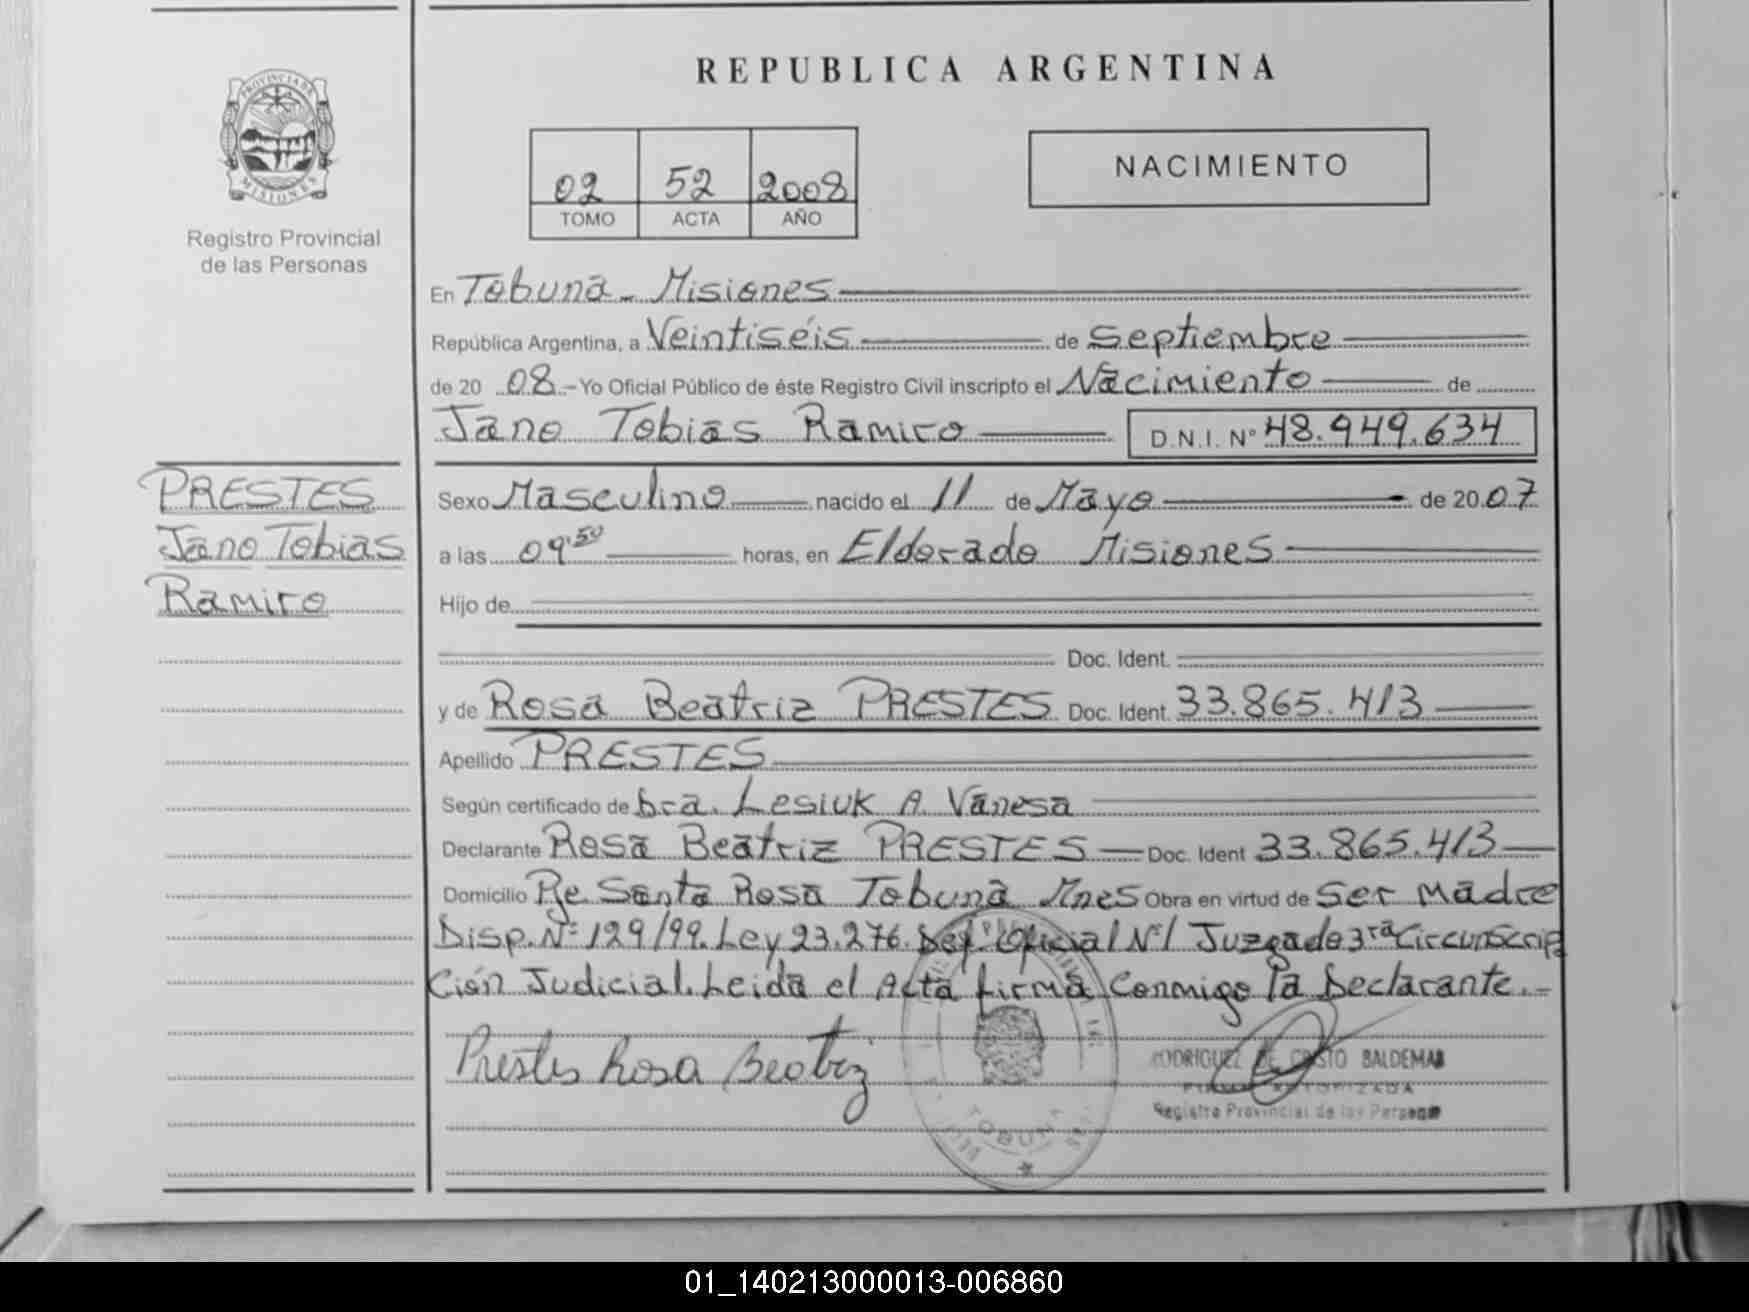 REPUBLICA ARGENTINA
PROVINCIA DE
MISIONES
Registro Provincial
de las Personas
02 52 2008
TOMO ACTA AÑO
NACIMIENTO
En Tobuna - Misiones
República Argentina, a Veintiséis de Septiembre
de 20 08 - Yo Oficial Público de éste Registro Civil inscripto el Nacimiento de
Jano Tobias Ramiro D.N.I. Nº 48.949.634
PRESTES
Jano Tobias
Ramiro
Sexo Masculino nacido el 11 de Mayo de 20 07
a las 09:50 horas, en Eldorado Misiones
Hijo de
Doc. Ident.
y de Rosa Beatriz PRESTES Doc. Ident. 33.865.413
Apellido PRESTES
Según certificado de Dra. Lesiuk A. Vanesa
Declarante Rosa Beatriz PRESTES Doc. Ident 33.865.413
Domicilio Pje. Santa Rosa Tobuna Mnes Obra en virtud de Ser Madre
Disp. Nº 129/99. Ley 23.276. Def. Oficial Nº1 Juzgado 3ra Circunscrip
ción Judicial. Leida el Acta firma Conmigo la Declarante.-
Prestes Rosa Beatriz
RODRIGUEZ DE CRISTO BALDEMAR
FIRMA AUTORIZADA
Registro Provincial de las Personas
TOBUNA
01_140213000013-006860